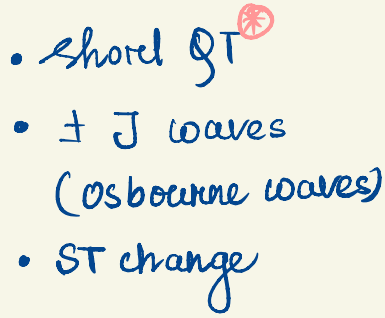 • short QT*
• ± J waves
(Osbourne waves)
• ST change